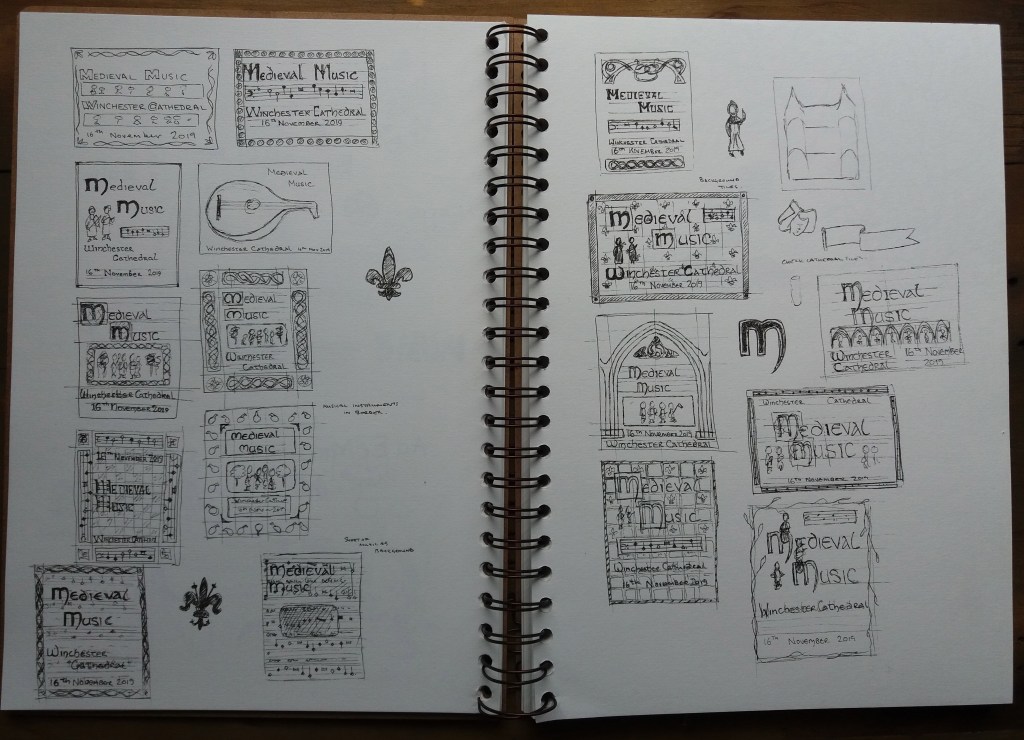 Medieval Music
Winchester Cathedral
16th November 2019
Medieval Music
Winchester Cathedral
16th November 2019
Medieval
Music
Winchester
Cathedral
16th November 2019
Medieval
Music
Winchester Cathedral
Medieval
Music
Winchester Cathedral
16th November 2019
Medieval
Music
Winchester
Cathedral
Musical instruments
in border
16th November 2019
Medieval
Music
Winchester
Medieval
Music
Medieval
Music
Winchester
"Cathedral"
16th November 2019
Sheet of
music as
background
Medieval
Music
Medieval
Music
Winchester Cathedral
16th November 2019
Background
tiles
Medieval
Music
Winchester Cathedral
16th November 2019
Medieval
Music
Winchester
Cathedral
16th November
2019
M
Medieval
Music
16th November 2019
Winchester Cathedral
Winchester Cathedral
Medieval
Music
16th November 2019
Medieval
Music
Winchester Cathedral
16th November 2019
Medieval
Music
Winchester Cathedral
16th November 2019